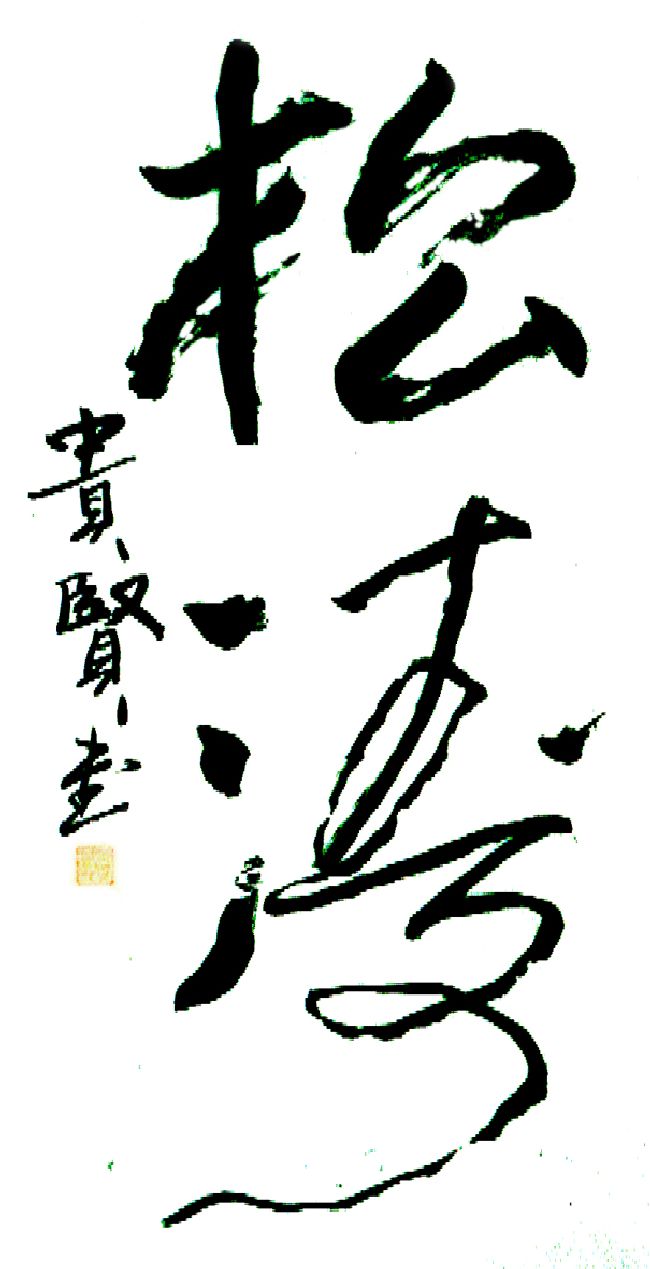 松濤
貴賢書